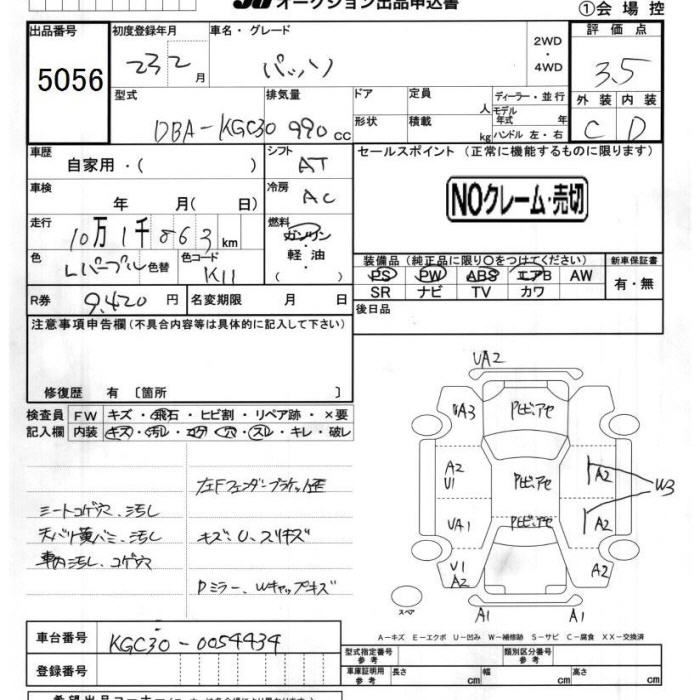 JU オークション出品申込書
①会場控
出品番号
5056
初度登録年月
23 2 月
車名・グレード
パッソ
2WD
・
4WD
評価点
3.5
型式
DBA-KGC30
排気量
990 cc
ドア
形状
定員
人
積載
kg
ディーラー・並行
モデル年式 年
ハンドル 左・右
外装 内装
C D
車歴
自家用・( )
シフト
AT
セールスポイント (正常に機能するものに限ります)
NOクレーム・売切
車検
年 月( 日)
冷房
AC
走行
10万1千863km
燃料
ガソリン
・
軽油
・
( )
色
Lパープル 色替
色コード
K11
装備品 (純正品に限り○をつけてください)
新車保証書
PS PW ABS エアB AW
SR ナビ TV カワ
有・無
R券
9,420 円
名変期限 月 日
後日品
注意事項申告欄 (不具合内容等は具体的に記入して下さい)
修復歴 有 〔箇所 〕
検査員
記入欄
FW キズ・飛石・ヒビ割・リペア跡・×要
内装 キズ・汚レ・コゲ・穴・スレ・キレ・破レ
シートコゲ穴、汚し
天バリ黄バミ、汚し
車内汚し、コゲ穴
左Fフェンダーブラケット歪
キズ、U、スリキズ
Dミラー、Wキャップキズ
UA2
UA3
Pビ、アセ
A2
U1
Pビ、アセ
A2
W3
UA1
Pビ、アセ
A2
U1
A2
A2
スペア
A1 A1
A-キズ E-エクボ U-凹み W-補修跡 S-サビ C-腐食 XX-交換済
車台番号
KGC30-0054434
登録番号
型式指定番号
参考
類別区分番号
参考
車庫証明用
参考
長さ cm 幅 cm 高さ cm